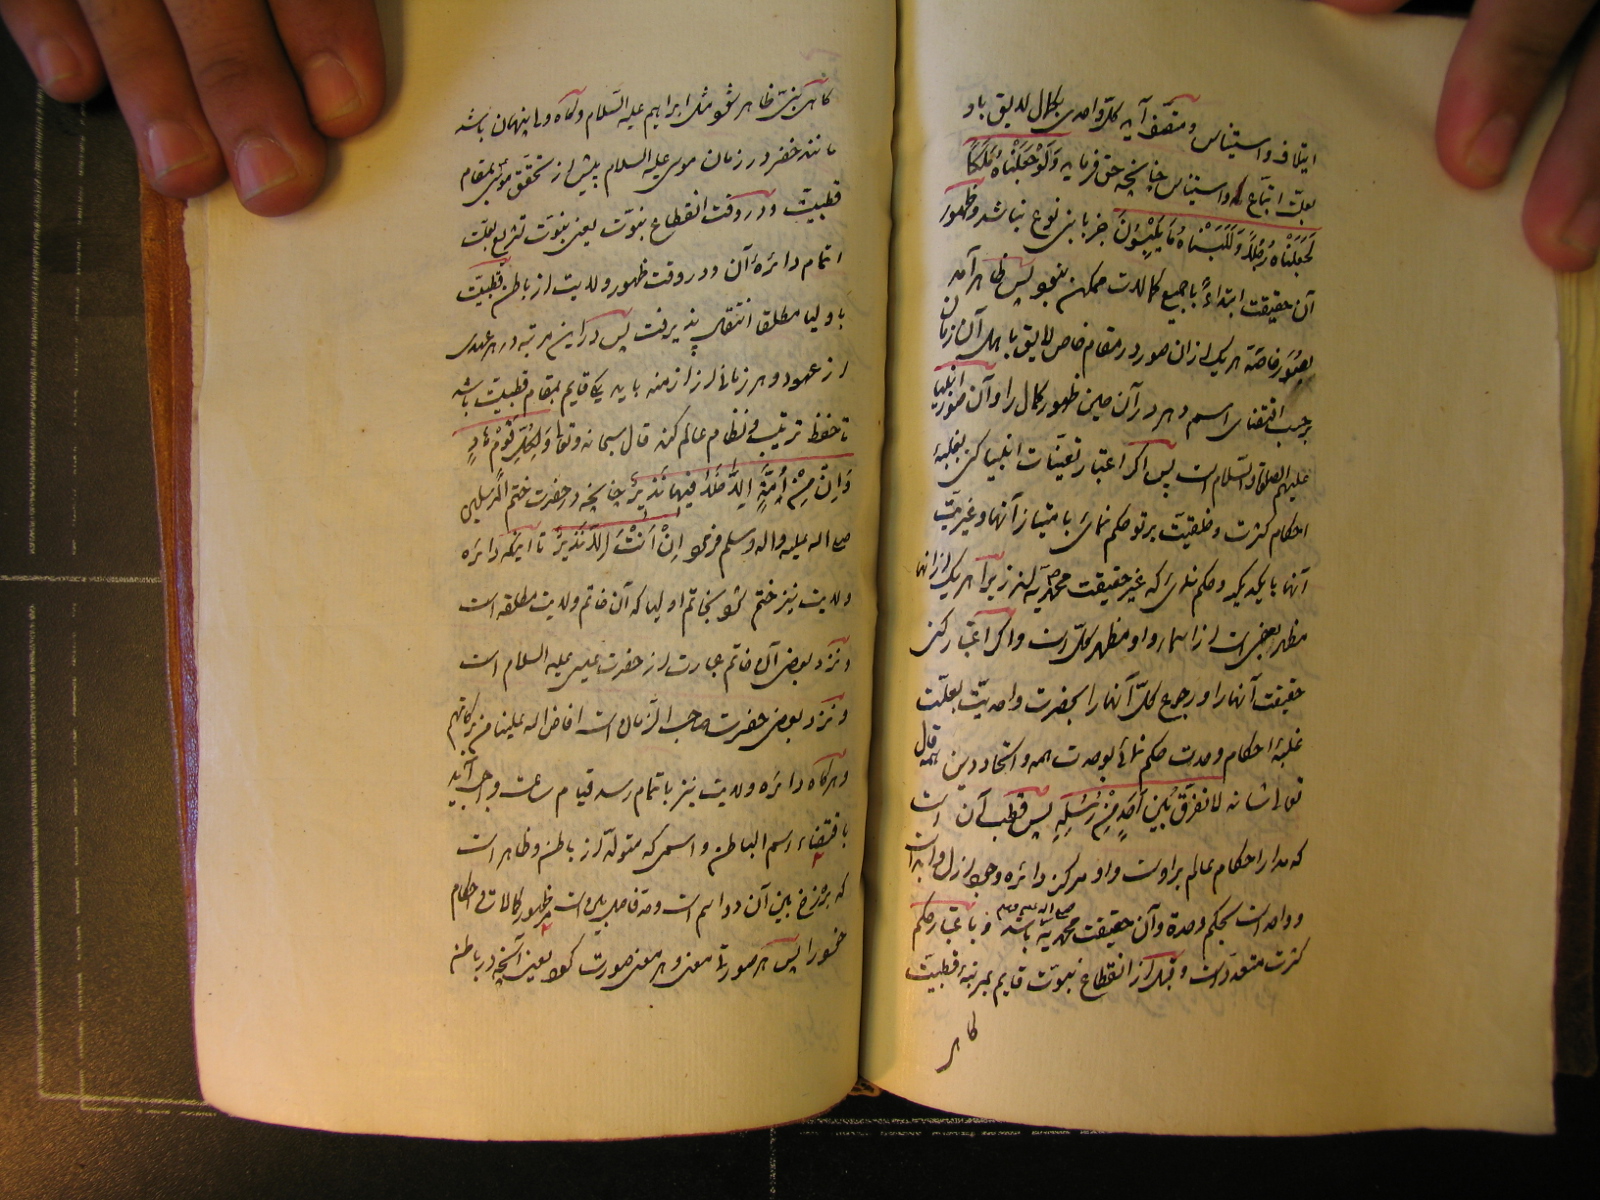 ایتلاف واستیناس ومتصف آید کل واحدی بکمال لایق باو
بعلت اتباع واستیناس چنانچه حق فرماید وَلَوْ جَعَلْنَاهُ مَلَكًا
لَجَعَلْنَاهُ رَجُلًا وَلَلَبَسْنَا مَا يَلْبِسُونَ جز با بنی نوع نباشد وظهور
آن حقیقت ابتداءً با جمیع کمالات ممکن نبود پس ظاهر آمد
بصور خاصّه هریک از آن صور در مقام خاص لایق باهل آن زمان
برحسب اقتضای اسم دهر در آن حین ظهور کمال را وآن صور انبیا
علیهم الصلوة والسّلام است پس اگر اعتبار تعینات انبیا کنی بغلبهٔ
احکام کثرت وخلقیت بر تو حکم نمائی بامتیاز آنها وغیریت
آنها با یکدیگر وحکم نمائی که غیر حقیقت محمدیه اند زیرا هریک از آنها
مظهر بعضی است از اسماء واو مظهر کل است واگر اعتبار کنی
حقیقت آنها را ورجوع کل آنها را بحضرت واحدیت بعلت
غلبهٔ احکام وحدت حکم نمائی بوحدت همه واتحاد دین همه قال
تعالی شانه لا نفرّق بین أحدٍ مِن رُسُلِهِ پس قطب آن است
که مدار احکام عالم بر اوست واو مرکز دائره وجود از ازل وابد است
وواحد است بحکم وحدة وآن حقیقت محمدیه صلی اله علیه وسلم باشد وباعتبار حکم
کثرت متعدد است وقبل از انقطاع نبوّت قایم بمرتبهٔ قطبیت
کاهی
کاهی نبیّ ظاهر شود مثل ابراهیم علیه السّلام وکاه ولی پنهان باشد
مانند خضر در زمان موسی علیه السلام پیش از تحقق موسی بمقام
قطبیت ودر وقت انقطاع نبوّت یعنی نبوّت تشریع بعلّت
اتمام دائرهٔ آن ودر وقت ظهور ولایت از باطن قطبیّت
باولیا مطلقا انتقال پذیرفت پس در این مرتبه در هر عهدی
از عهود وهر زمانی از ازمنه باید یکی قایم بمقام قطبیت باشد
تا حفظ ترتیب ونظام عالم کند قال سبحانه وتعالی وَلِكُلِّ قَوْمٍ هَادٍ
وَاِن مِنْ اُمَّةٍ اِلَّا خَلَا فِيهَا نَذِيرٌ چنانچه در حضرت ختم المرسلین
صلی اله علیه واله وسلم فرمود اِنْ اَنْتَ اِلَّا نَذِيرٌ تا اینکه دائره
ولایت نیز ختم شود بخاتم اولیا که آن خاتم ولایت مطلقه است
ونزد بعضی آن خاتم عبارت از حضرت عیسی علیه السلام است
ونزد بعضی حضرت صاحب الزّمان است افاض اله علینا من برکاتهم
وهرکاه دائره ولایت نیز باتمام رسد قیام ساعت واجب آید
باقتضاء اسم الباطن واسمی که متولد از باطن وظاهر است
که برزخ بین آن دو اسم است وحد فاصل بین است ظهور کمالات واحکام
خود را پس هر صورتی معنی وهر معنی صورت کردد یعنی آنچه در باطن